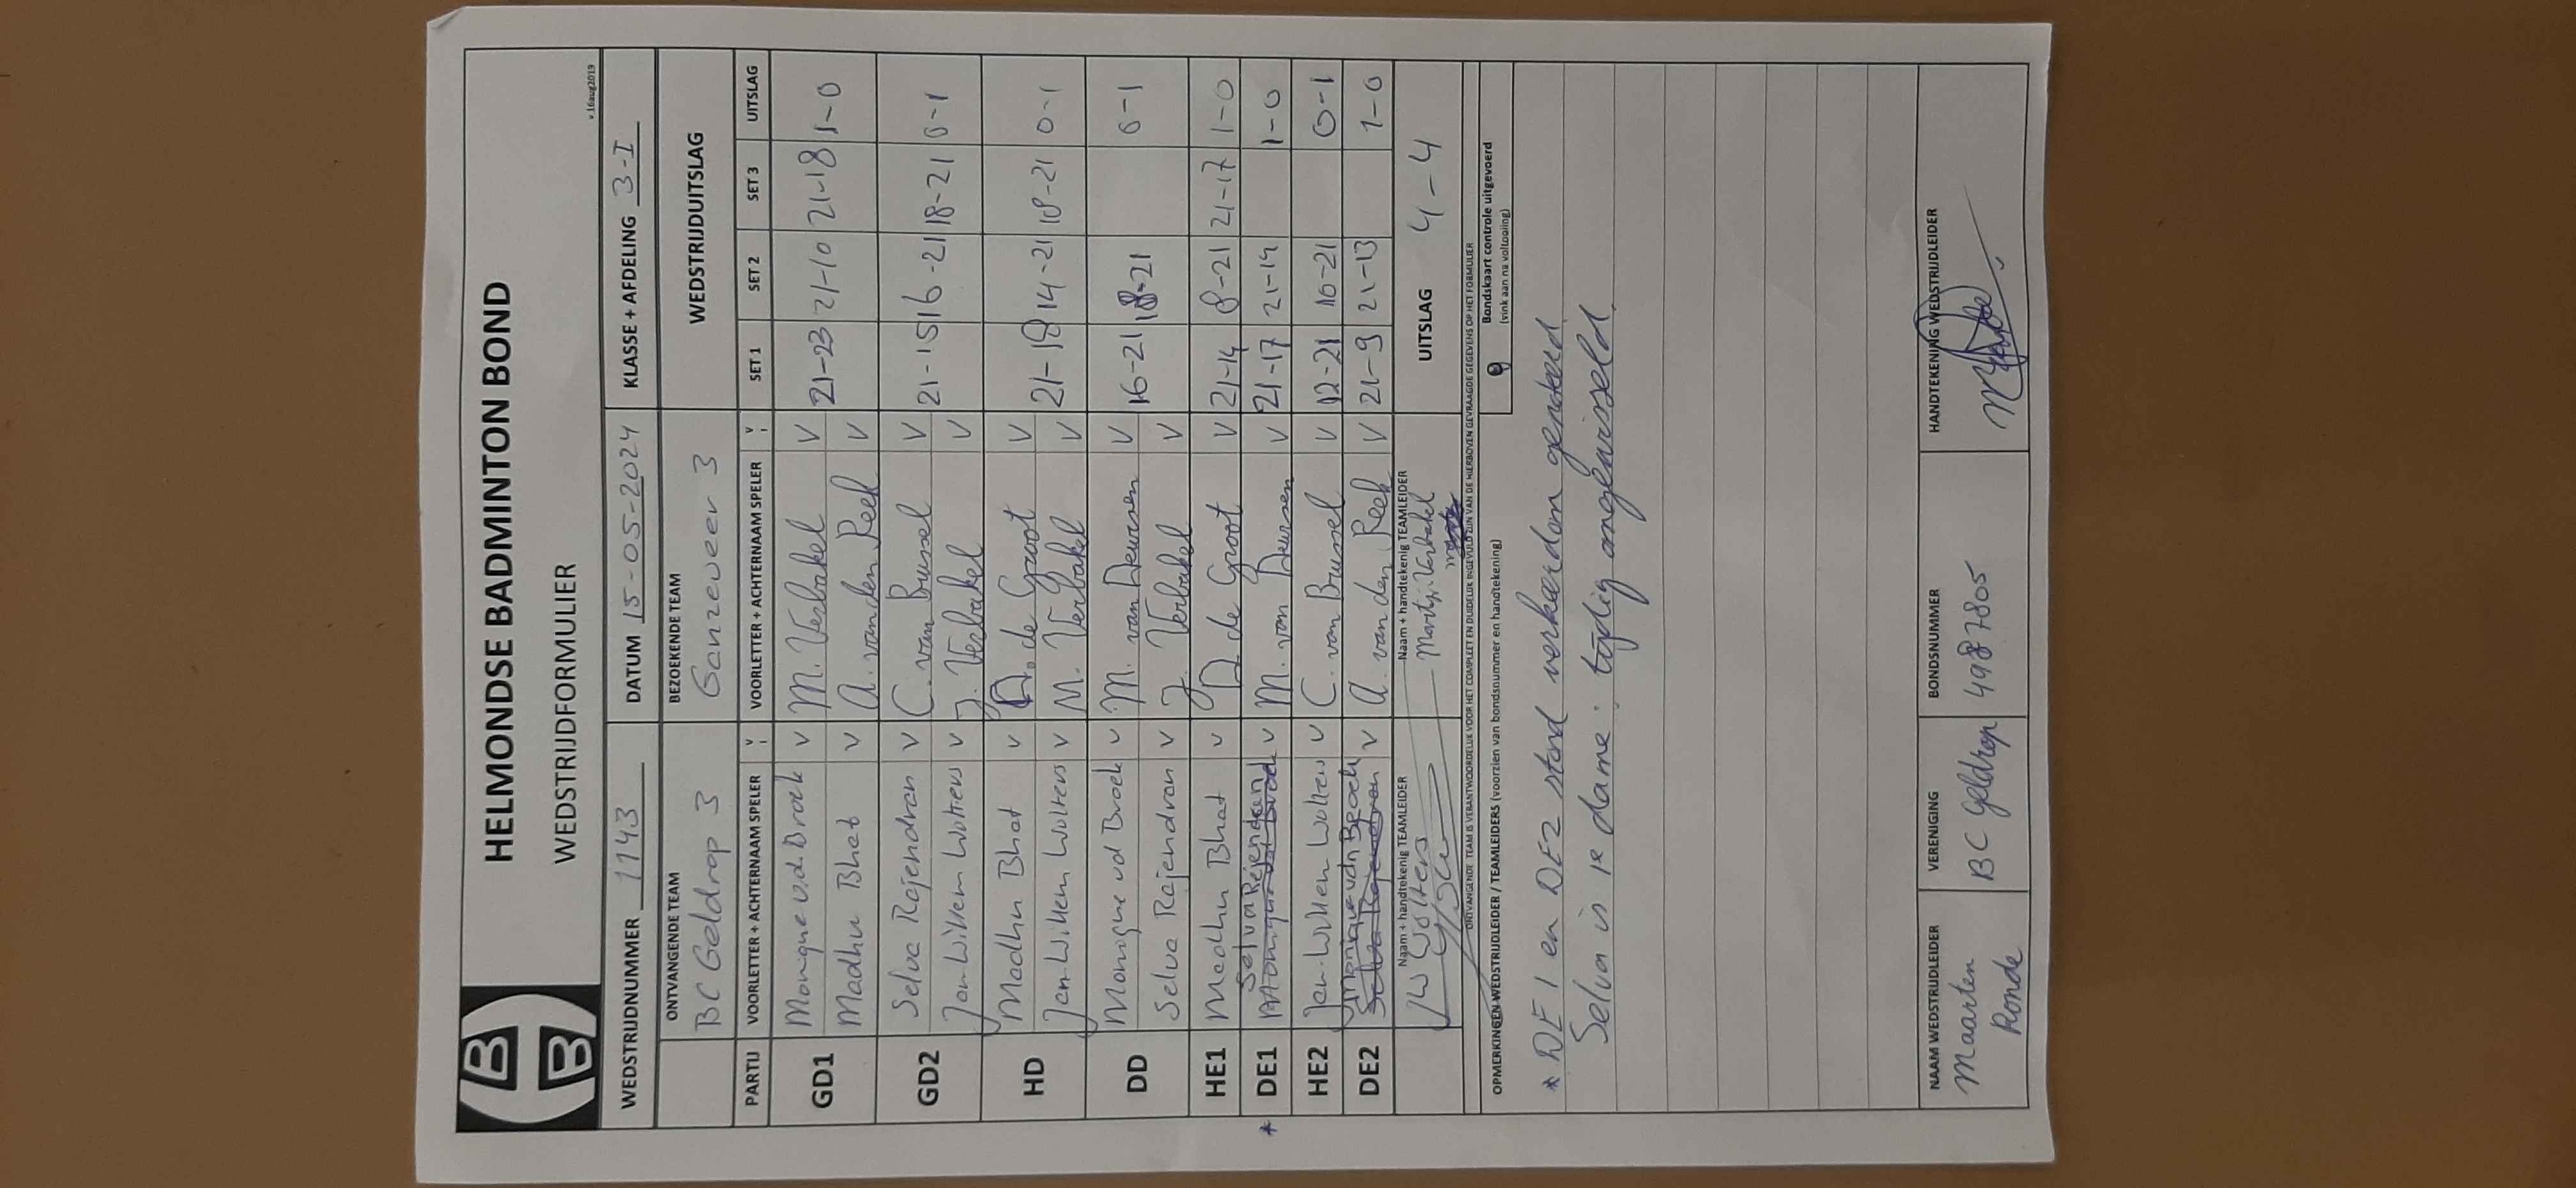 HELMONDSE BADMINTON BOND
WEDSTRIJDFORMULIER
v.16aug2019
WEDSTRIJDNUMMER 1143 DATUM 15-05-2024 KLASSE + AFDELING 3-I
ONTVANGENDE TEAM BEZOEKENDE TEAM WEDSTRIJDUITSLAG
BC Geldrop 3 Ganzeveer 3
PARTIJ VOORLETTER + ACHTERNAAM SPELER V VOORLETTER + ACHTERNAAM SPELER V SET 1 SET 2 SET 3 UITSLAG
GD1 Monique v.d. Broek V M. Verbakel V 21-23 21-10 21-18 1-0
Madhu Bhat V A. van den Reek V
GD2 Selva Rajendran V C. van Brussel V 21-15 16-21 18-21 0-1
Jan-Willem Wolters V J. Verbakel V
HD Madhu Bhat V D. de Groot V 21-18 14-21 18-21 0-1
Jan-Willem Wolters V M. Verbakel V
DD Monique vd Broek V M. van Deursen V 16-21 18-21 0-1
Selva Rajendran V J. Verbakel V
HE1 Madhu Bhat V D. de Groot V 21-14 8-21 21-17 1-0
* DE1 Selva Rajendran V M. van Deursen V 21-17 21-14 1-0
HE2 Jan-Willem Wolters V C. van Brussel V 12-21 16-21 0-1
DE2 Monique vdn Broek V A. van den Reek V 21-9 21-13 1-0
Naam + handtekenig TEAMLEIDER Naam + handtekenig TEAMLEIDER UITSLAG 4-4
JW Wolters Martijn Verbakel
ONTVANGENDE TEAM IS VERANTWOORDELIJK VOOR HET COMPLEET EN DUIDELIJK INGEVULD ZIJN VAN DE HIERBOVEN GEVRAAGDE GEGEVENS OP HET FORMULIER
OPMERKINGEN WEDSTRIJDLEIDER / TEAMLEIDERS (voorzien van bondsnummer en handtekening)
Bondskaart controle uitgevoerd
(vink aan na voltooiing)
* DE1 en DE2 stond verkeerdom genoteerd.
Selva is 1e dame: tijdig omgewisseld.
NAAM WEDSTRIJDLEIDER VERENIGING BONDSNUMMER HANDTEKENING WEDSTRIJDLEIDER
Maarten BC Geldrop 4987805
Ronde